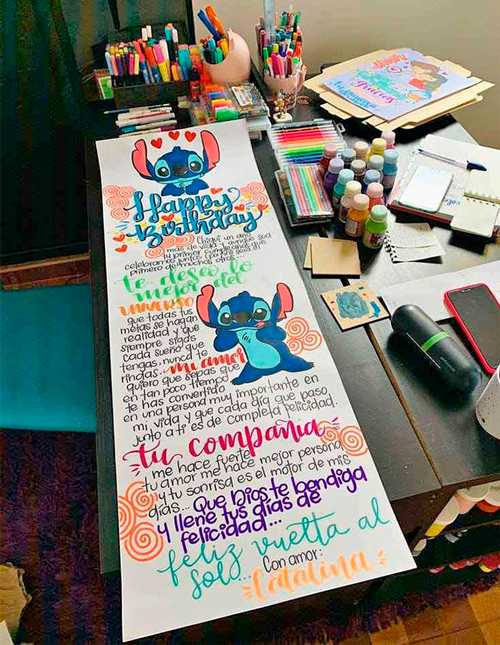 Happy
Birthday
un año
más de vida y aunque sea
tu primer cumpleaños que
celebramos juntos
primero de muchos otros
te deseo lo
mejor del
universo
que todas tus
metas se hagan
realidad y que
siempre
cada sueño que
tengas, nunca te
rindas... mi amor
quiero que sepas que
en tan poco tiempo
te has convertido
en una persona muy importante en
mi vida y que cada día que paso
junto a ti es de completa felicidad.
tu compañia
me hace fuerte
tu amor me hace mejor persona
y tu sonrisa es el motor de mis
días... Que Dios te bendiga
y llene tus días de
felicidad...
feliz vuelta al
sol... Con amor:
Catalina
Gracias